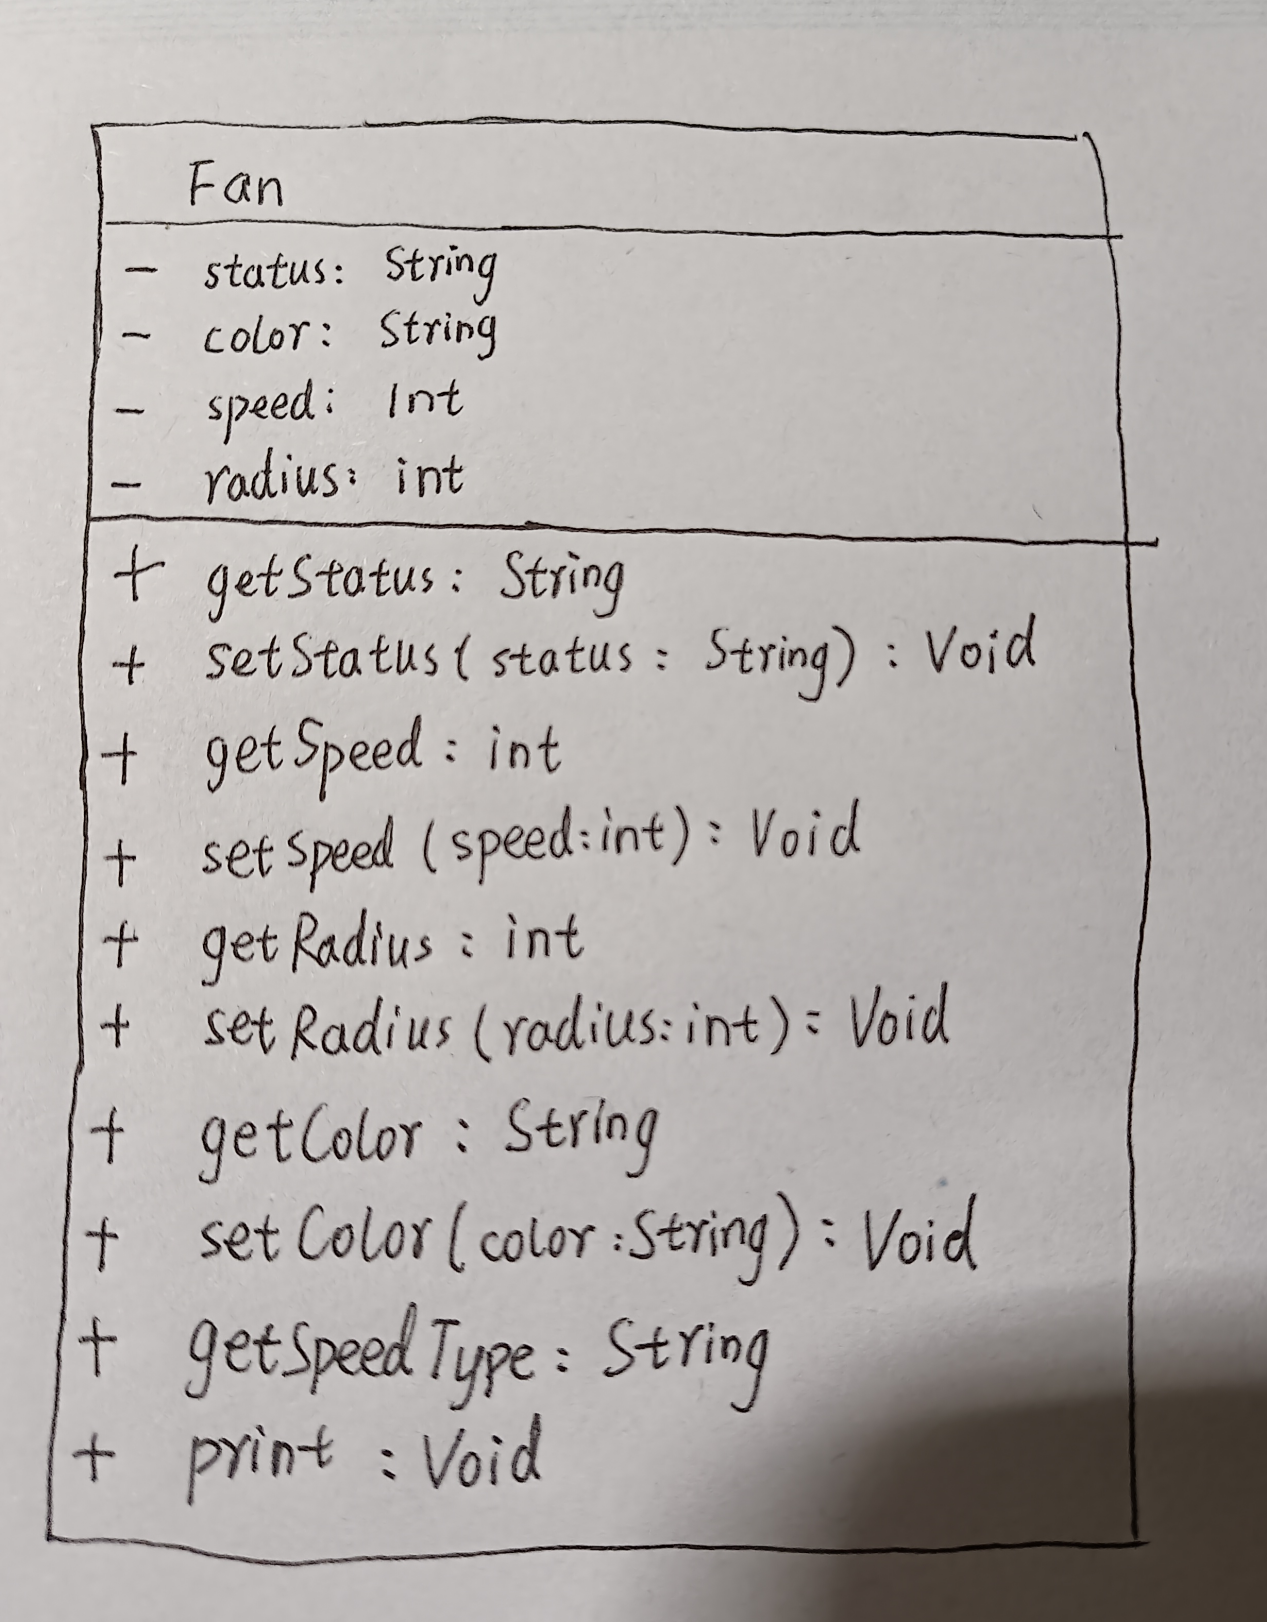 Fan
- status: String
- color: String
- speed: Int
- radius: int
+ getStatus: String
+ setStatus( status : String) : Void
+ getSpeed : int
+ setSpeed (speed:int) : Void
+ getRadius : int
+ setRadius (radius:int) : Void
+ getColor : String
+ setColor (color :String) : Void
+ getSpeedType : String
+ print : Void